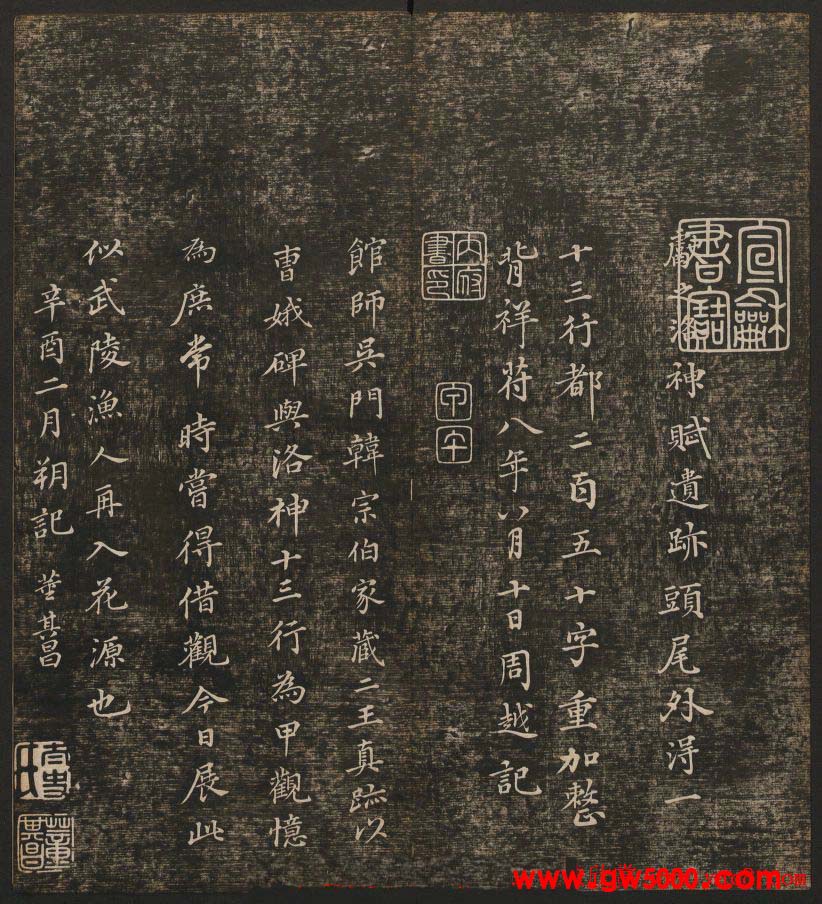 宣龢書寶
獻之洛神賦遺跡頭尾外淂一
十三行都二百五十字重加整
背祥苻八年八月十日周越記
內府書印
館師吳門韓宗伯家藏二王真跡以
曹娥碑與洛神十三行為甲觀憶
為庶常時嘗得借觀今日展此
似武陵漁人再入花源也
辛酉二月朔記 董其昌
太史氏
董其昌